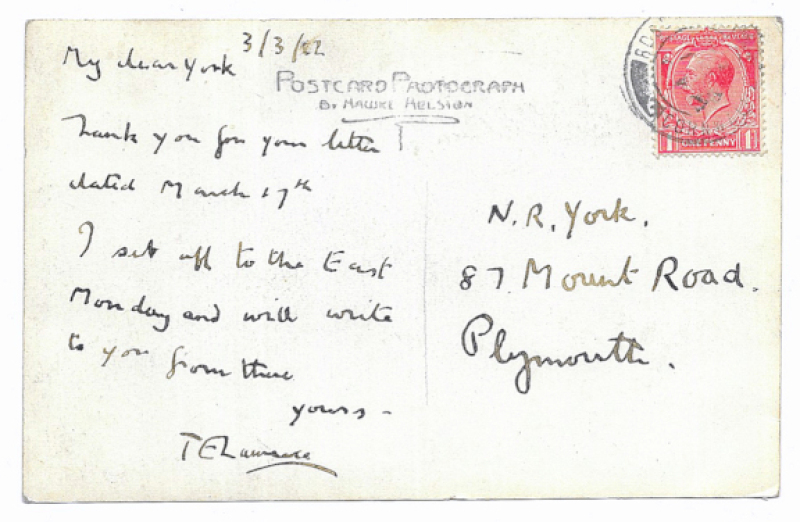 3/3/22
My dear York
POSTCARD PHOTOGRAPH
BY HAWKE HELSTON
Thank you for your letter
dated March 17th
I set off to the East
Monday and will write
to you from there
yours -
T E Lawrence
N.R. York.
87 Mount Road.
Plymouth.
ONE PENNY
1
1